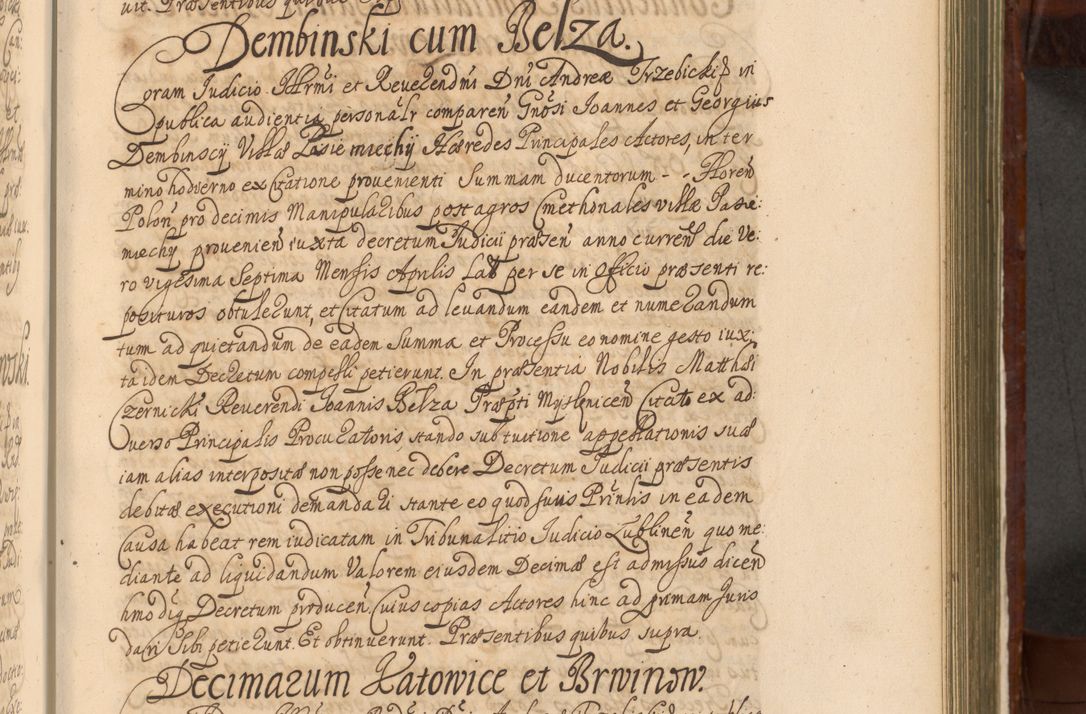 uit. Præsentibus quibus supra
Dembinski cum Belza.
Coram Iudicio Illrmi et Reverendmi Dni Andreæ Trzebicki in
publica audientia personalr comparen Gnosi Ioannes et Georgius
Dembinscÿ Villæ Pasie miechÿ Hæredes Principales Actores, in ter
mino hodierno ex Citatione provenienti Summam ducentorum - - Floren
Polon pro decimis Manipularibus post agros Cmethonales villæ Pasie:
miechÿ provenien iuxta decretum Iudicii præsen anno curren die Ve:
ro vigesima Septima Mensis Aprilis Lat per se in Officio præsenti re:
posituros obtulerunt, et Citatum ad levandum eandem et numerandum
tum ad quietandum de eadem Summa et Processu eo nomine gesto iux:
ta idem Decretum compelli petierunt. In præsentia Nobilis Matthæi
Czernicki Reverendi Ioannis Belza Præpti Myslenicen Citato ex ad:
verso Principalis Procuratoris, stando sub tuitione appellationis suæ
iam alias interpositæ non posse nec debere Decretum Iudicii præsentis
debitæ executioni demandari stante eo quod suus Prinlis in eadem
Causa habeat rem iudicatam in Tribunalitio Iudicio Lublinen quo me:
diante ad liquidandum Valorem eiusdem Decimæ est admissus dicen
hmodiq Decretum producen Cuius copias Actores hinc ad primam Juris
dari Sibi petierunt. Et obtinuerunt. Præsentibus quibus supra.
Decimarum Katowice et Brwinow.